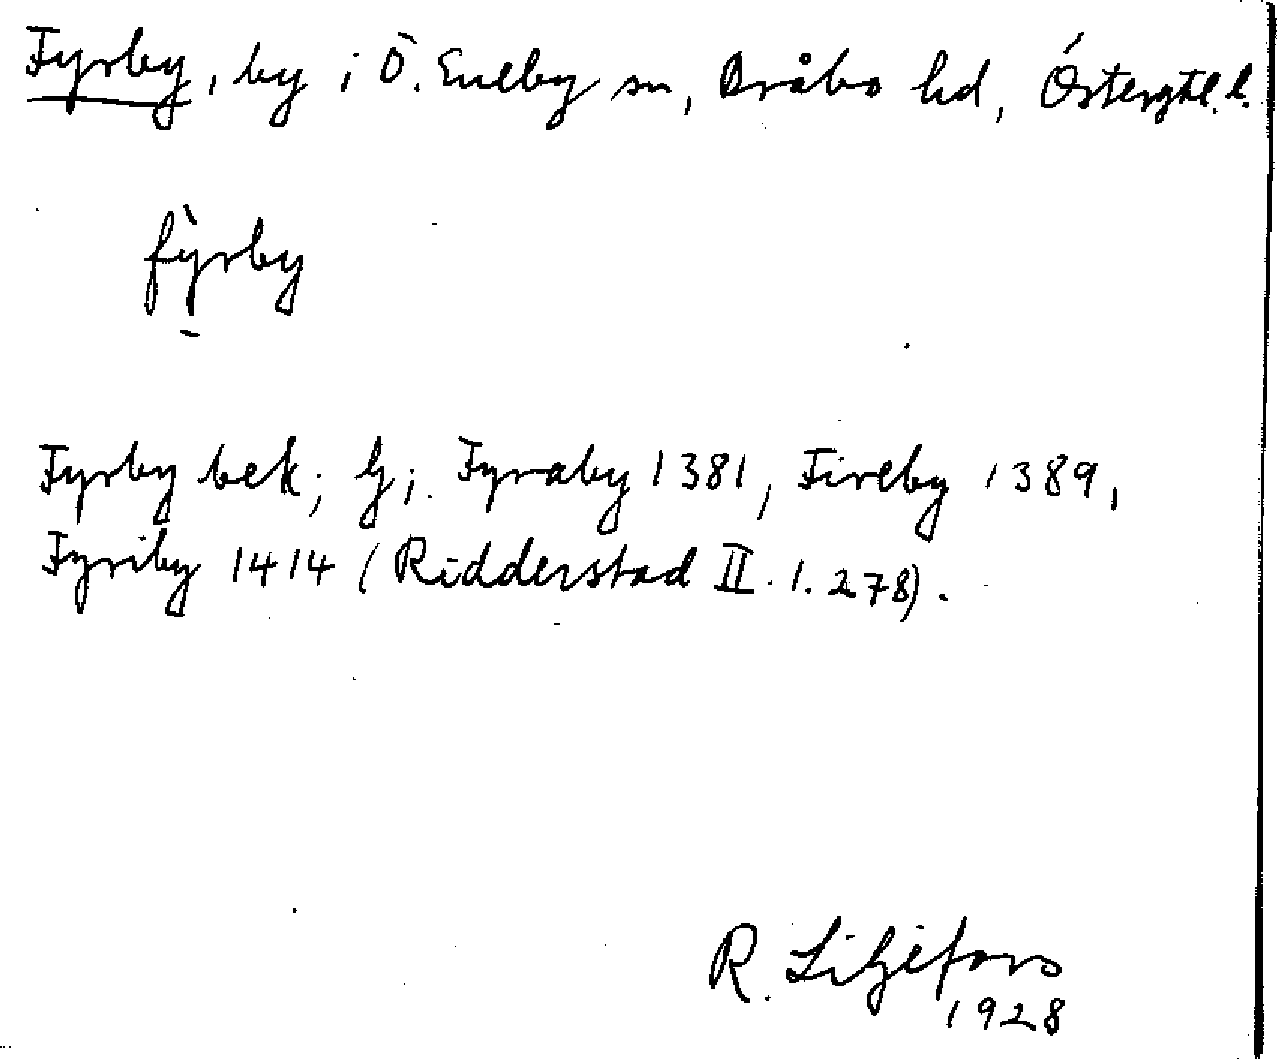 Fyrby, by i Ö. Eneby sn, Bråbo hd, Östergtl. l.
fỳrby
Fyrby bek; Gj. Fyraby 1381, Fireby 1389,
Fyriby 1414 (Ridderstad II. 1. 278).
R. Liljefors
1928